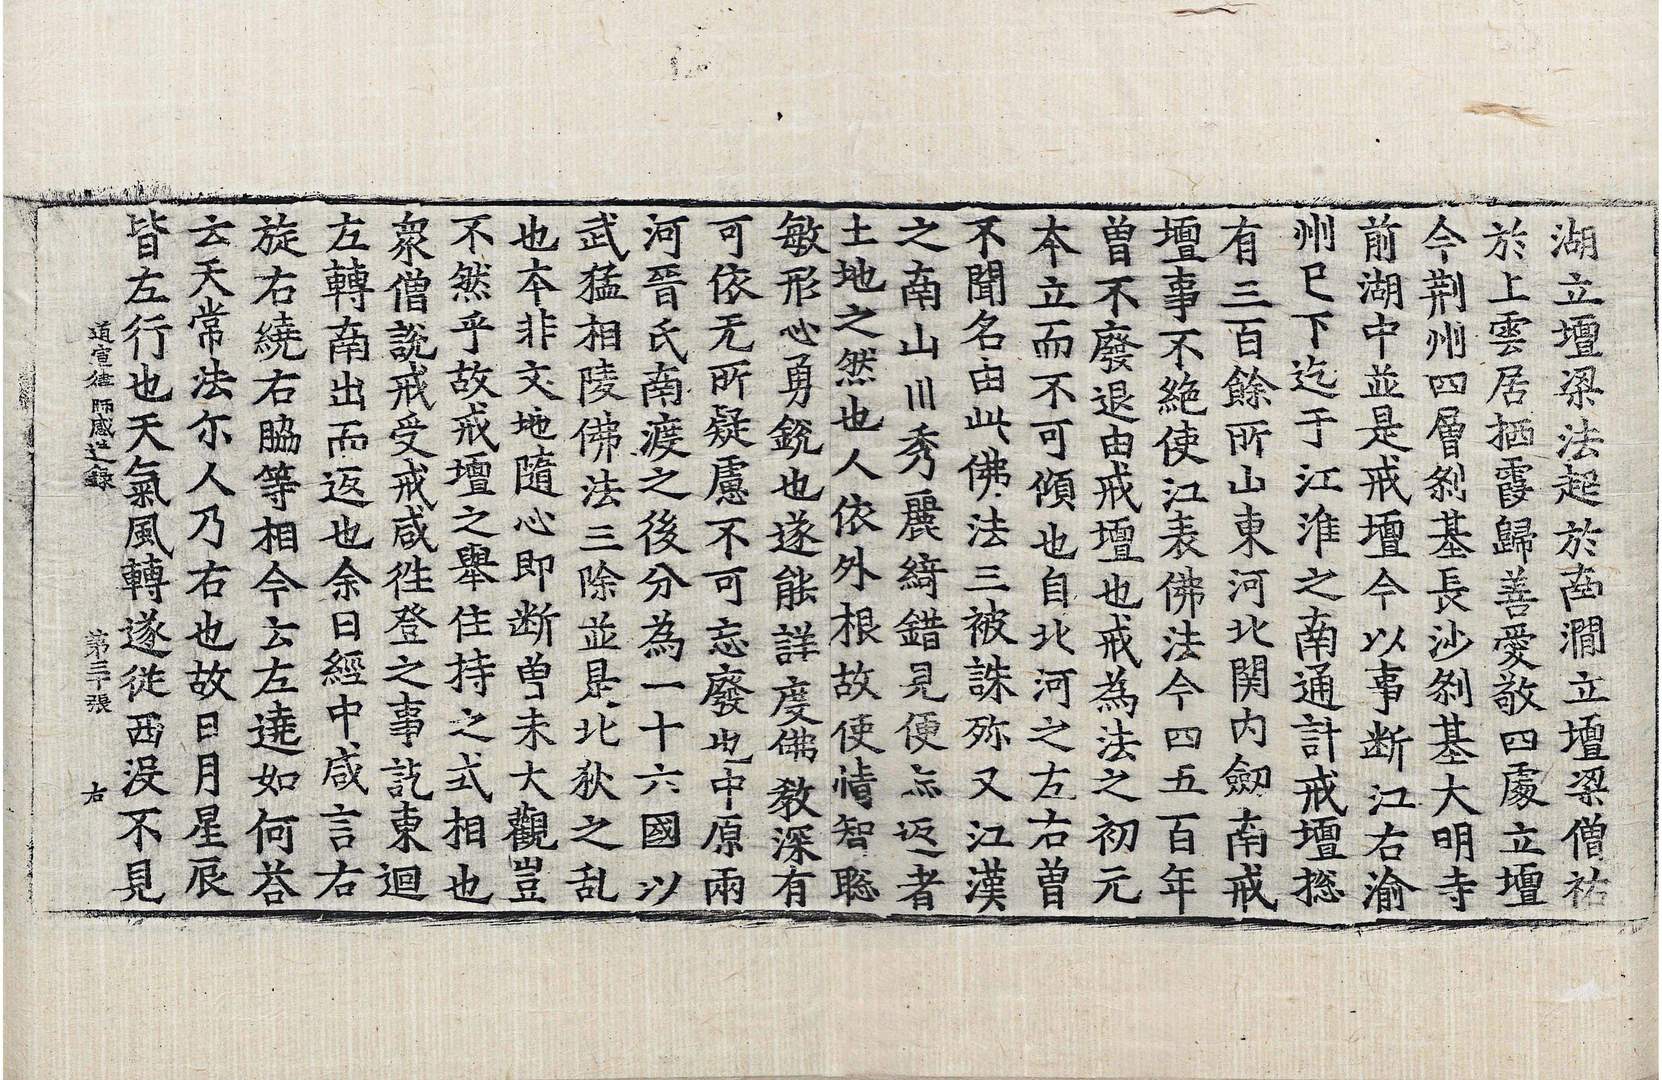 湖立壇梁法起於南澗立壇梁僧祐
於上雲居栖霞歸善愛敬四處立壇
今荆州四層刹基長沙刹基大明寺
前湖中並是戒壇今以事断江右渝
州已下迄于江淮之南通計戒壇揔
有三百餘所山東河北関内劔南戒
壇事不絶使江表佛法今四五百年
曽不廢退由戒壇也戒為法之初元
本立而不可傾也自北河之左右曽
不聞名由此佛法三被誅殄又江漢
之南山川秀麗綺錯見便忘返者
土地之然也人依外根故使情智聡
敏形心勇銳也遂能詳度佛教深有
可依无所疑慮不可忘廢也中原兩
河晉氏南渡之後分為一十六國以
武猛相陵佛法三除並是北狄之乱
也本非文地隨心即断曽未大觀豈
不然乎故戒壇之舉住持之式相也
衆僧說戒受戒咸徃登之事訖東迴
左轉南出而返也余曰經中咸言右
旋右繞右脇等相今云左遶如何荅
云天常法尓人乃右也故日月星辰
皆左行也天氣風轉遂從西没不見
道宣律師感通録　第三十張　右